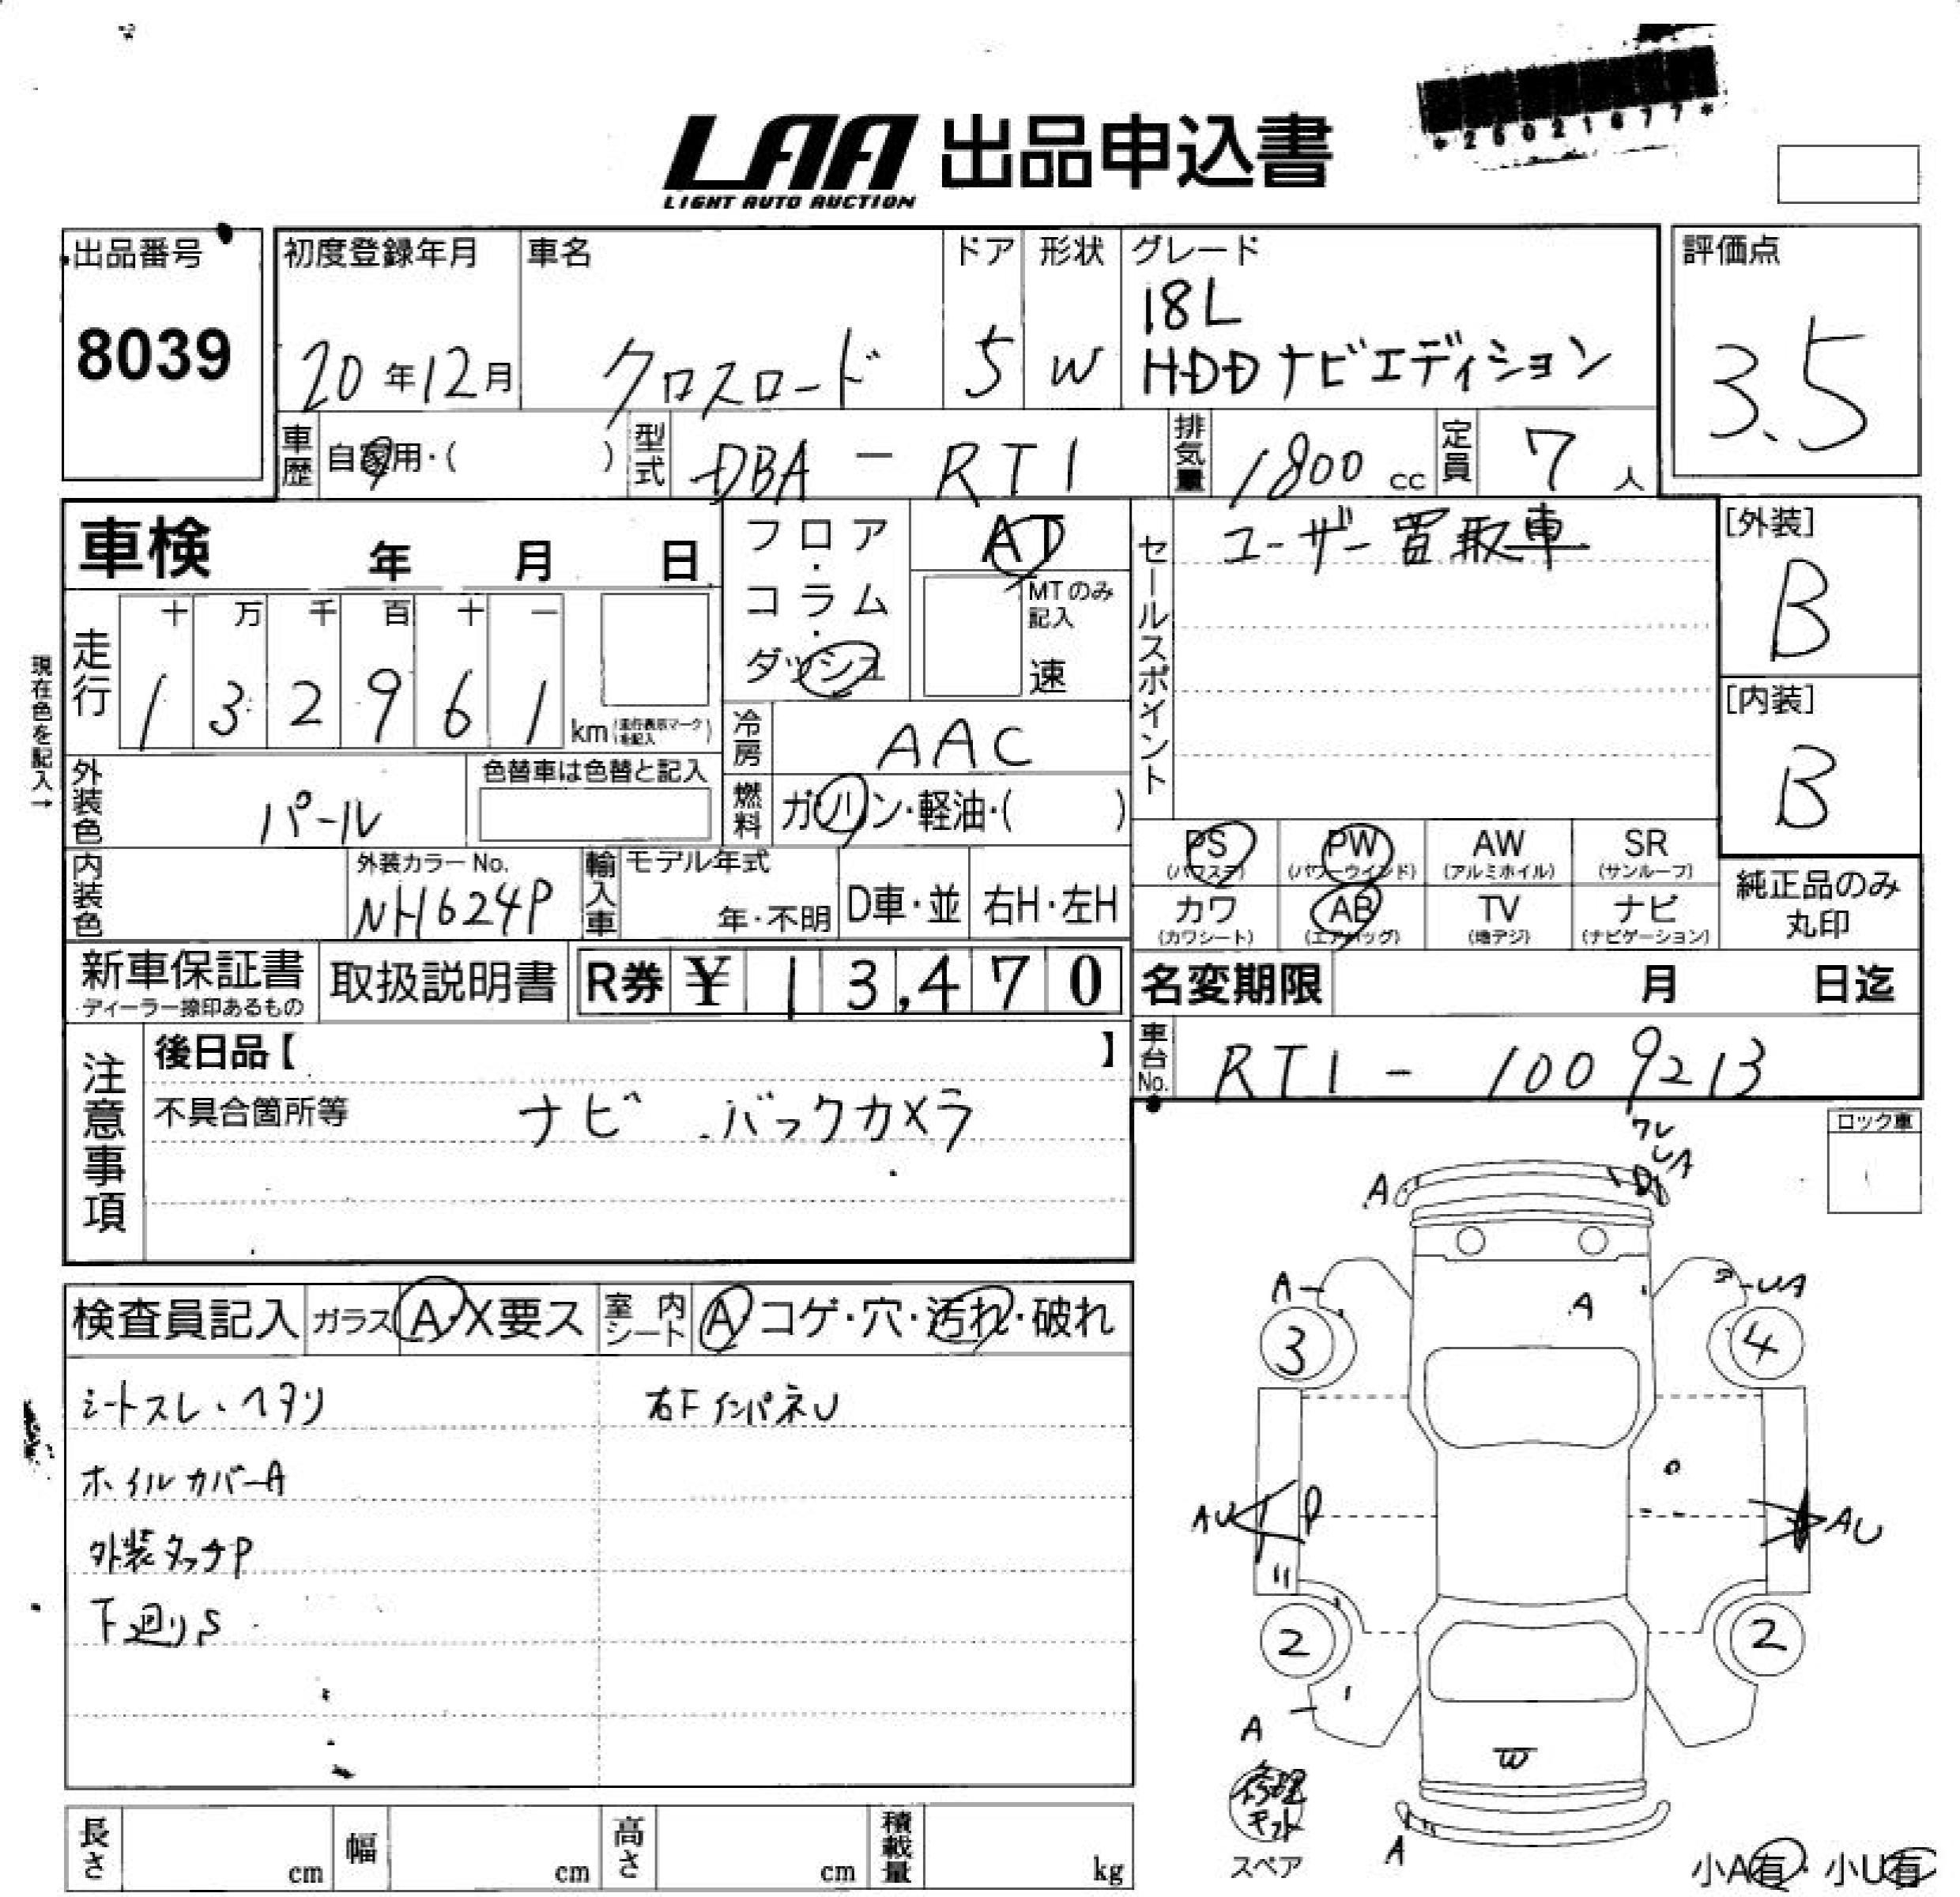 *26021677*
LAA 出品申込書
LIGHT AUTO AUCTION
出品番号
8039
初度登録年月
20年12月
車名
クロスロード
ドア
5
形状
W
グレード
18L
HDDナビエディション
評価点
3.5
車歴
自家用・( )
型式
DBA - RT1
排気量
1800 cc
定員
7 人
車検 年 月 日
フロア・コラム・ダッシュ
AT
MTのみ記入
速
セールスポイント
ユーザー買取車
[外装]
B
[内装]
B
現在色を記入→
走行
十 万 千 百 十 一
1 3 2 9 6 1 km
(走行表示マークを記入)
冷房
AAC
外装色
パール
色替車は色替と記入
燃料
ガソリン・軽油・( )
内装色
外装カラーNo.
NH624P
輸入車
モデル年式
年・不明
D車・並
右H・左H
PS
(パワステ)
PW
(パワーウインド)
AW
(アルミホイル)
SR
(サンルーフ)
カワ
(カワシート)
AB
(エアバッグ)
TV
(地デジ)
ナビ
(ナビゲーション)
純正品のみ
丸印
新車保証書
ディーラー捺印あるもの
取扱説明書
R券 ¥ 13,470
名変期限 月 日迄
車台No.
RT1 - 1009213
注意事項
後日品【 】
不具合箇所等
ナビ バックカメラ
ロック車
検査員記入
ガラス A・X要ス
室内シート A コゲ・穴・汚れ・破れ
シートスレ、ヘタリ
右FインパネU
ホイルカバーA
外装タッチP
下廻りS
ワレ
UA
A
D
A
UA
A
3
4
AU
P
AU
2
2
A
W
修理キット
スペア
A
小A有・小U有
長さ cm
幅 cm
高さ cm
積載量 kg